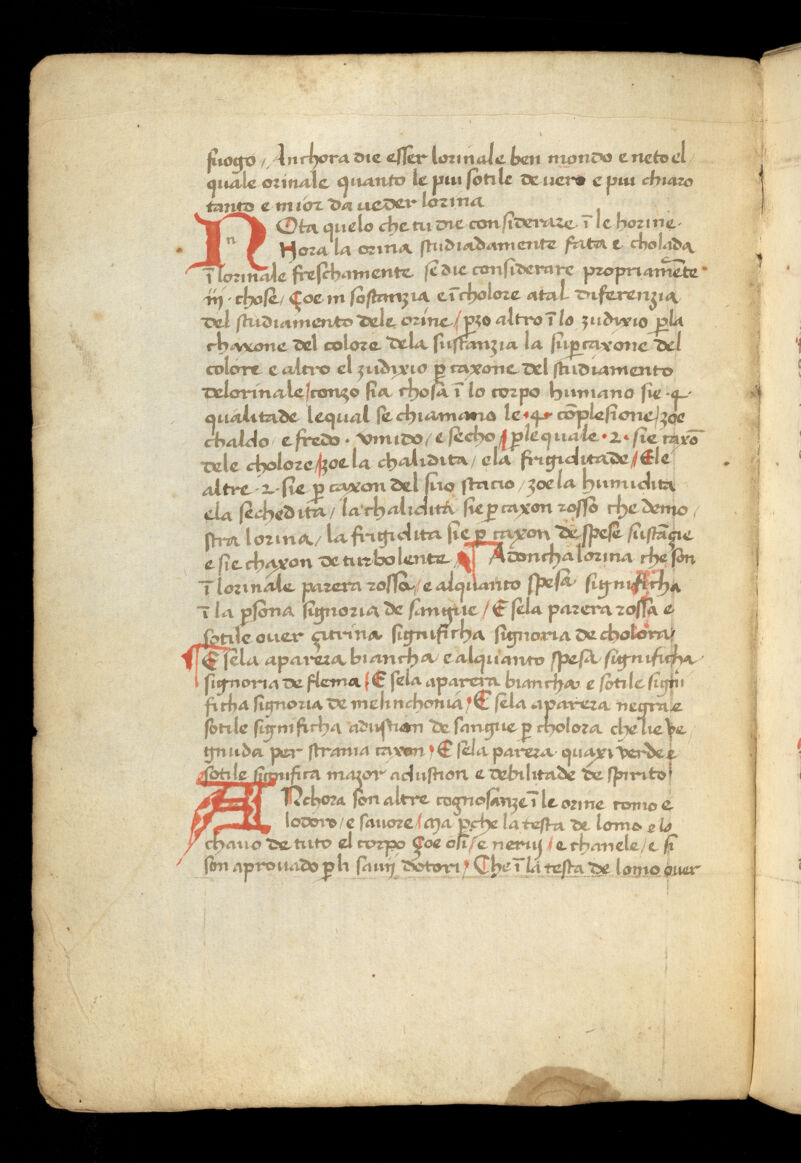 fuogo / Anchora die esser lorinale ben mondo e neto el
quale orinale quanto le piu sotile de uero e piu chiaro
tanto e mior da ueder lorina
NOta quelo che tu die considerare ī le horine ·
Hora la orina studiadamente fata e cholada
ī lorinale freschamente se die considerare propriamēte
iij · chose / çoe in sostanzia e ī cholore atal diferenzia
del studiamento dele orine / ꝑzo altro ī lo zudixio ꝑ la
chaxone del colore dela sustanzia la suꝑcaxone del
colore e altro el zudixio ꝑ caxone del studiamento
delorinale / conzo sia chosa ī lo corpo humano sie · 4 ·
qualitade lequal se chiamano le · 4 · cōplesione / zoe
chaldo / e fredo · vmido / e secho / ꝑ le quale · 2 · sie caxō
dele cholore / zoe la chalidita / e la frigiditade / E le
altre · 2 · sie ꝑ caxon del suo stacio / zoe la humidita
e la sechedita / la chalidita sie ꝑ caxon rosso che demo /
stra lorina / la frigidita sie ꝑ caxon de spese sustāzie
e sie chaxon de turbolente ¶ Adoncha lorina che son
ī lorinale parera rossa / e alquanto spesa significha
ī la ꝑsona signoria de sangue / E se la parera rossa e
sotile ouer çitrina significha signoria de cholora /
¶ E se la aparera biancha e alquanto spesa significha
signoria de flema / E se la aparera biancha e sotile signi
ficha signoria de melinchonia / E se la aparera negra e
sotile significha adustion de sangue ꝑ cholora che lie ve /
gnuda per strania caxon / E se la parera quaxi verde e
sotile significa mazor adustion e debilitade de spirito
ANchora son altre cognosanze ī le orine como e
lodoro / e sauore / Ma ꝑche la testa de lomo e lo
chauo de tuto el corpo çoe osi / e neruij / e chanele / e si
son aprouado ꝑ li sauij dotori / Che ī la testa de lomo ouer